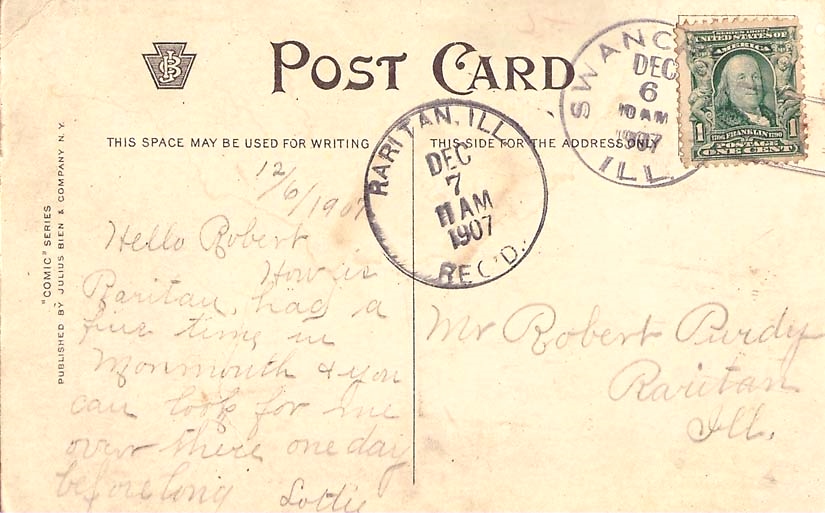 POST CARD
THIS SPACE MAY BE USED FOR WRITING
THIS SIDE FOR THE ADDRESS ONLY
"COMIC" SERIES
PUBLISHED BY JULIUS BIEN & COMPANY N.Y.
JB
12/6/1907
Hello Robert
How is
Raritan, had a
fine time in
Monmouth & you
can look for me
over there one day
before long Lottie
RARITAN, ILL
DEC
7
11 AM
1907
REC'D.
SWANC
DEC
6
10 AM
1907
ILL.
SERIES 1902
UNITED STATES OF
AMERICA
1706 FRANKLIN 1790
1 1
POSTAGE
ONE CENT
Mr Robert Purdy
Raritan
Ill.